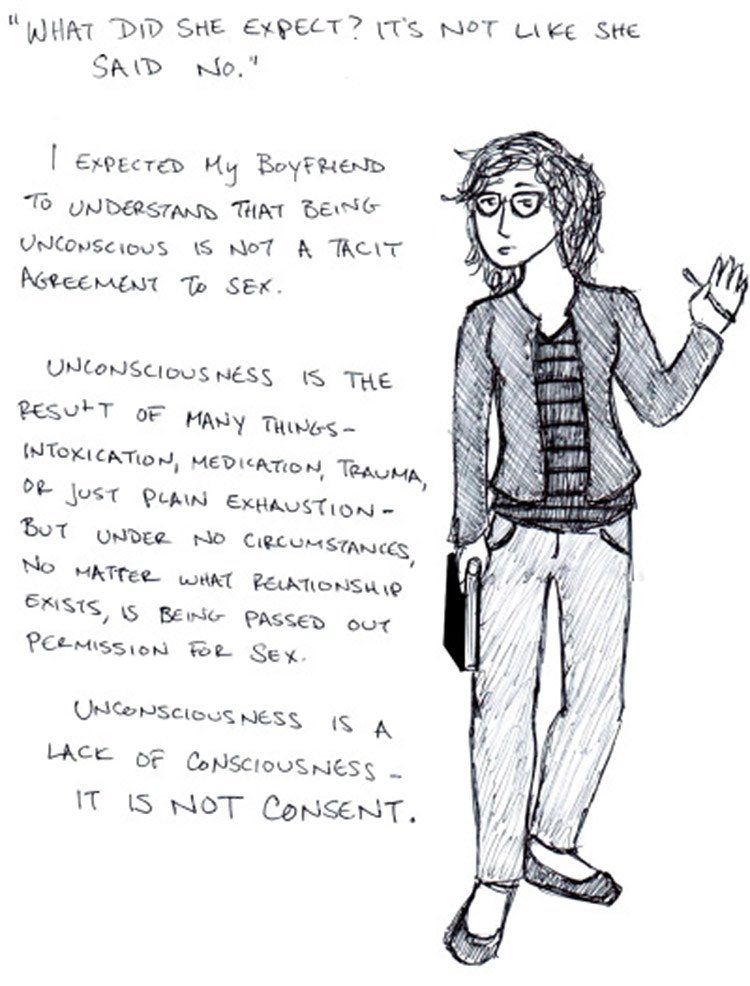 "WHAT DID SHE EXPECT? IT'S NOT LIKE SHE
SAID NO."
I EXPECTED MY BOYFRIEND
TO UNDERSTAND THAT BEING
UNCONSCIOUS IS NOT A TACIT
AGREEMENT TO SEX.
UNCONSCIOUSNESS IS THE
RESULT OF MANY THINGS-
INTOXICATION, MEDICATION, TRAUMA,
OR JUST PLAIN EXHAUSTION-
BUT UNDER NO CIRCUMSTANCES,
NO MATTER WHAT RELATIONSHIP
EXISTS, IS BEING PASSED OUT
PERMISSION FOR SEX.
UNCONSCIOUSNESS IS A
LACK OF CONSCIOUSNESS-
IT IS NOT CONSENT.